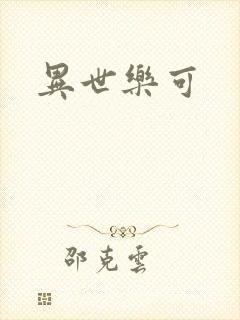 異世樂可
邵克雲